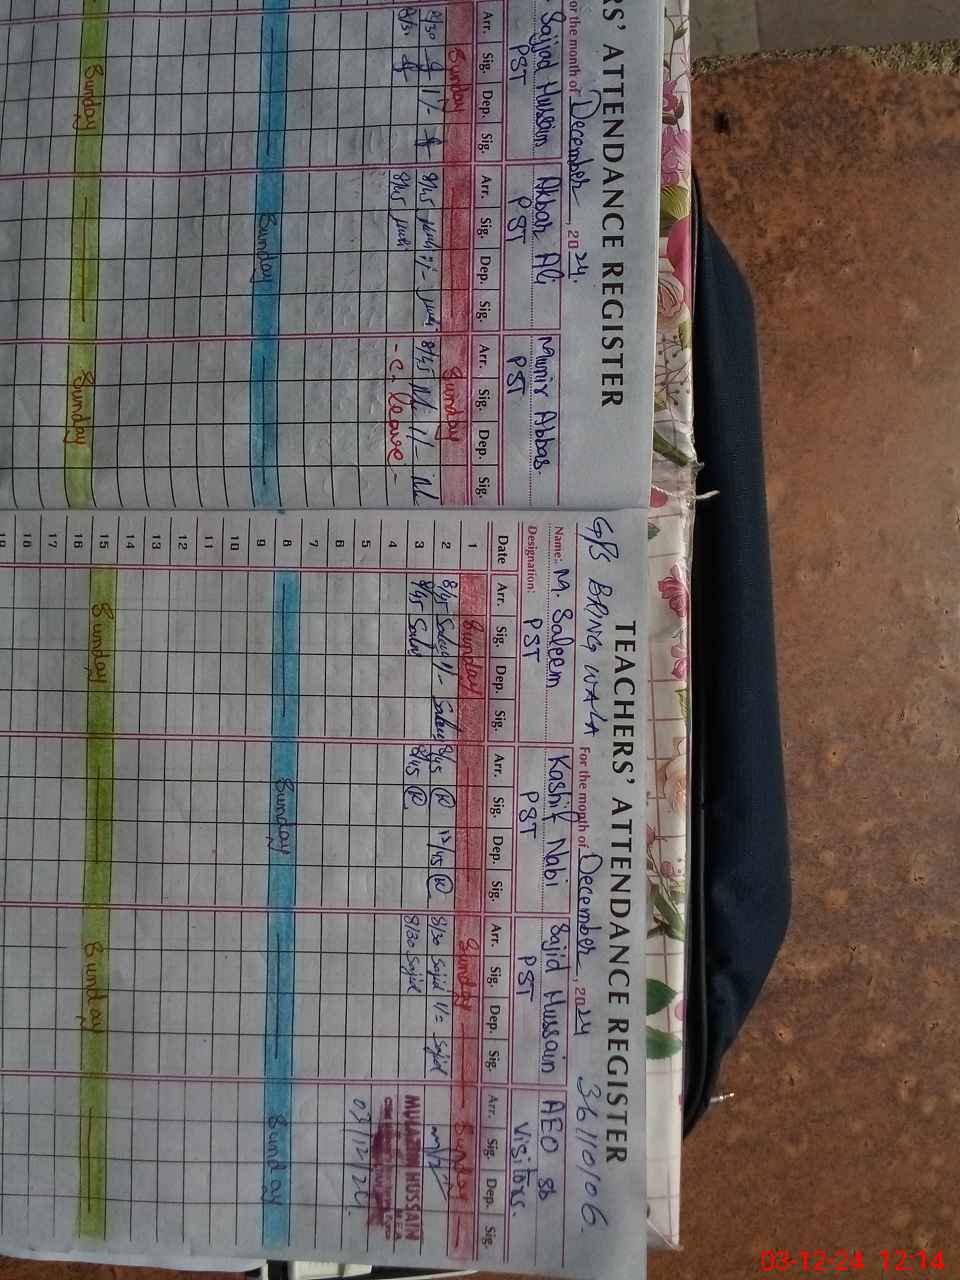 RS' ATTENDANCE REGISTER
for the month of December, 2024.
Sajjad Hussain Akbar Ali Munir Abbas.
PST PST PST
Arr. Sig. Dep. Sig. Arr. Sig. Dep. Sig. Arr. Sig. Dep. Sig.
Sunday Sunday
8/30 1/- 8/45 1/- 8/45 1/-
8/30 8/45 - C-leave -
Sunday
Sunday Sunday
TEACHERS' ATTENDANCE REGISTER
G/B BRING WALA For the month of December, 2024 36110106.
Name: M. Saleem Kashif Nabi Sajid Hussain AEO sb
Designation: PST PST PST Visitors.
Date Arr. Sig. Dep. Sig. Arr. Sig. Dep. Sig. Arr. Sig. Dep. Sig. Arr. Sig. Dep. Sig.
1 Sunday Sunday Sunday
2 8/45 Saleem 1/- Saleem 8/45 12/45 8/30 Sajid 1/= Sajid
3 8/45 Saleem 8/45 8/30 Sajid MULAZIM HUSSAIN
4
5 03/12/24
6
7
8 Sunday Sunday
9
10
11
12
13
14
15 Sunday Sunday
16
17
18
19
03-12-24 12:14